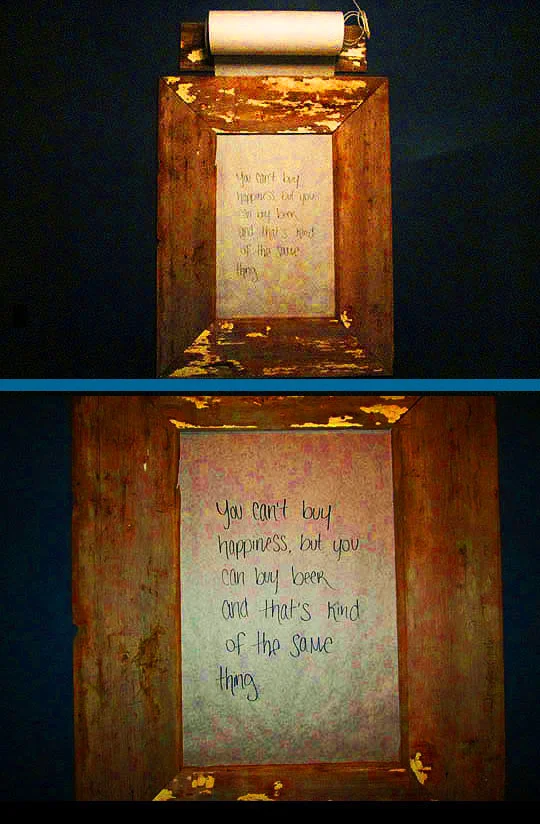 You can't buy
happiness, but you
can buy beer
and that's kind
of the same
thing
You can't buy
happiness, but you
can buy beer
and that's kind
of the same
thing